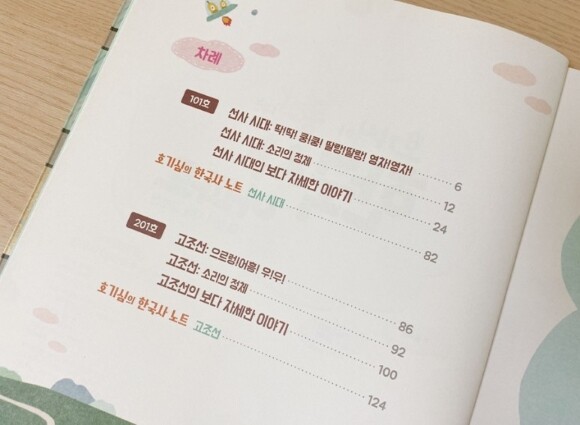 차례
101호
선사 시대: 딱!딱! 쿵!쿵! 딸랑!딸랑! 영차!영차! 6
선사 시대: 소리의 정체 12
선사 시대의 보다 자세한 이야기 24
호기심의 한국사 노트 선사 시대 82
201호
고조선: 으르렁!어흥! 우!우! 86
고조선: 소리의 정체 92
고조선의 보다 자세한 이야기 100
호기심의 한국사 노트 고조선 124